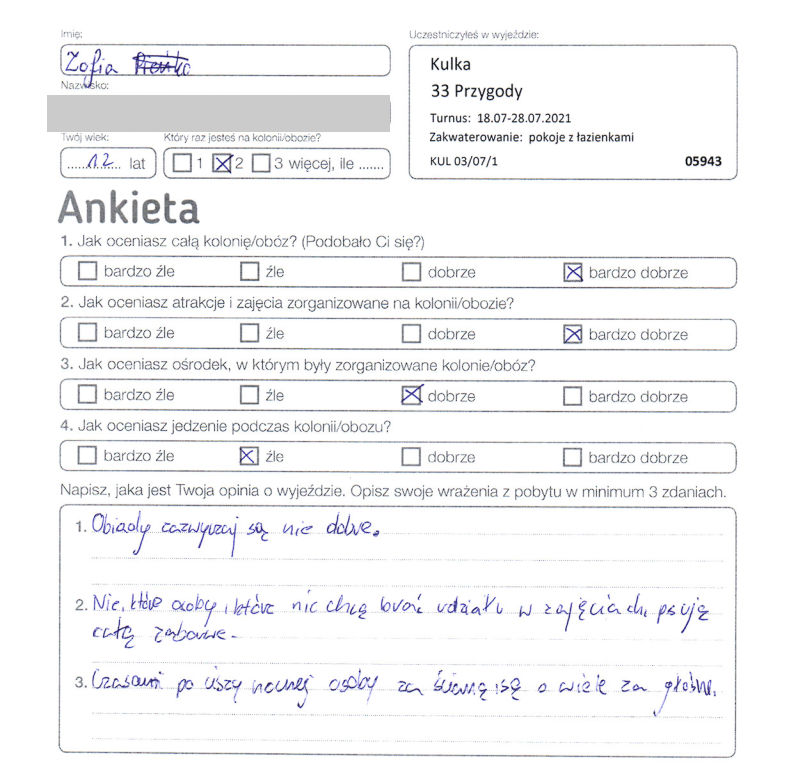 Imię:
Uczestniczyłeś w wyjeździe:
Zofia
Nazwisko:
Kulka
33 Przygody
Turnus: 18.07-28.07.2021
Zakwaterowanie: pokoje z łazienkami
KUL 03/07/1 05943
Twój wiek:
Który raz jesteś na kolonii/obozie?
12 lat
1 2 3 więcej, ile .......
Ankieta
1. Jak oceniasz całą kolonię/obóz? (Podobało Ci się?)
bardzo źle źle dobrze bardzo dobrze
2. Jak oceniasz atrakcje i zajęcia zorganizowane na kolonii/obozie?
bardzo źle źle dobrze bardzo dobrze
3. Jak oceniasz ośrodek, w którym były zorganizowane kolonie/obóz?
bardzo źle źle dobrze bardzo dobrze
4. Jak oceniasz jedzenie podczas kolonii/obozu?
bardzo źle źle dobrze bardzo dobrze
Napisz, jaka jest Twoja opinia o wyjeździe. Opisz swoje wrażenia z pobytu w minimum 3 zdaniach.
1. Obiady zazwyczaj są nie dobre.
2. Nie, które osoby, które nie chcą brać udziału w zajęciach, psują
całą zabawe.
3. Czasami po ciszy nocnej osoby za ścianą są o wiele za głośno.